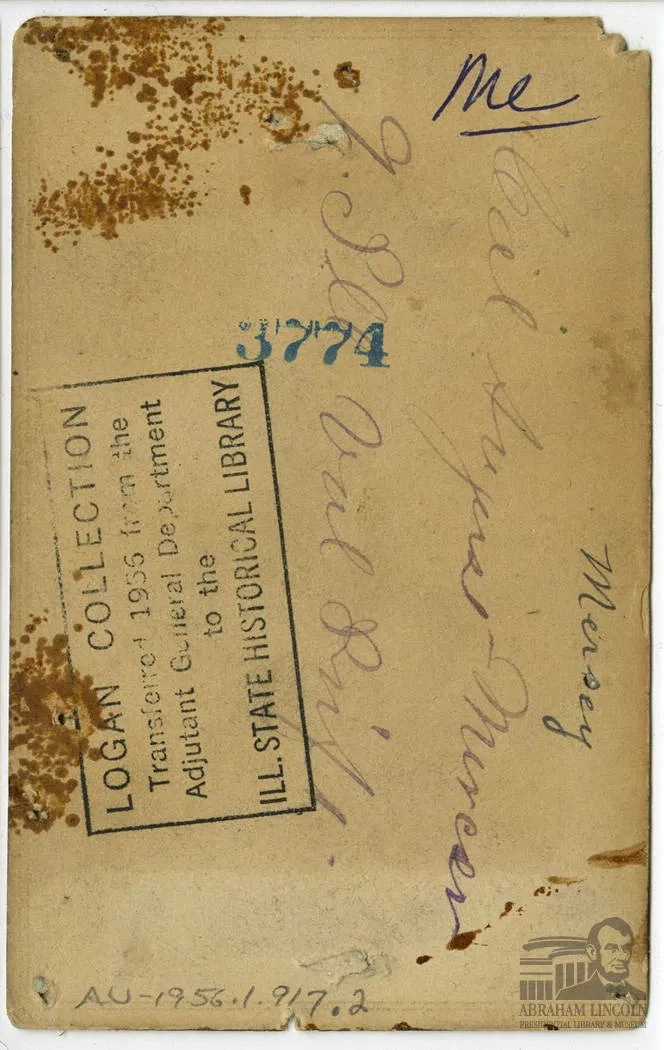 Me
Mersey
Col August Mersey
9. Ills Vol Inf'
3774
LOGAN COLLECTION
Transferred 1956 from the
Adjutant General Department
to the
ILL. STATE HISTORICAL LIBRARY
AU-1956.1.917.2
ABRAHAM LINCOLN
PRESIDENTIAL LIBRARY & MUSEUM